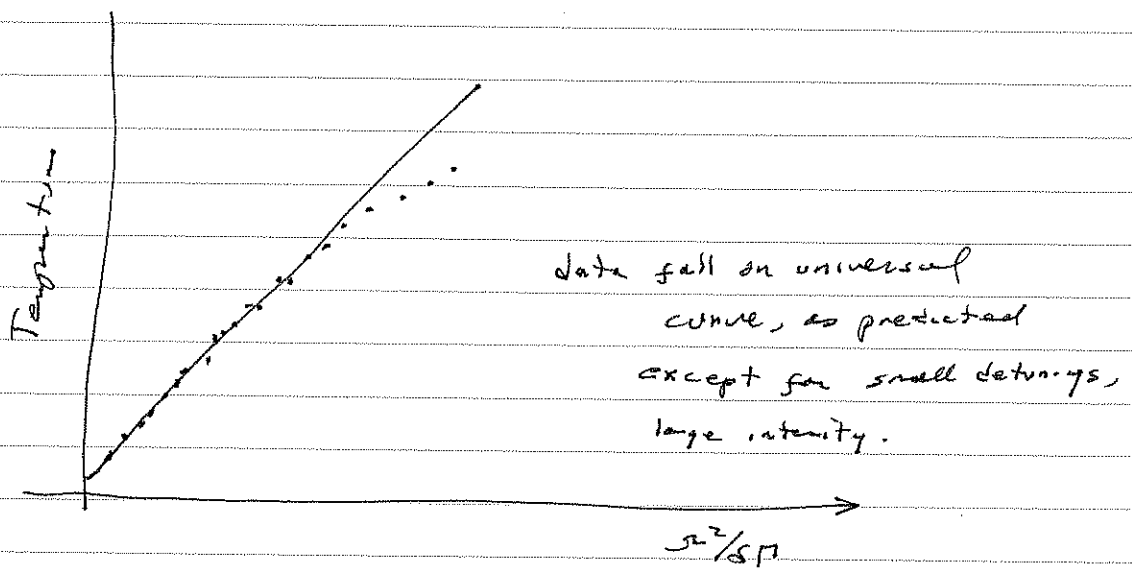 Temperature
data fall on universal
curve, as predicted
except for small detunings,
large intensity.
Ω²/δΓ